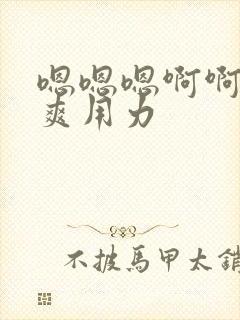 嗯嗯嗯啊啊
爽用力
不披馬甲太銷